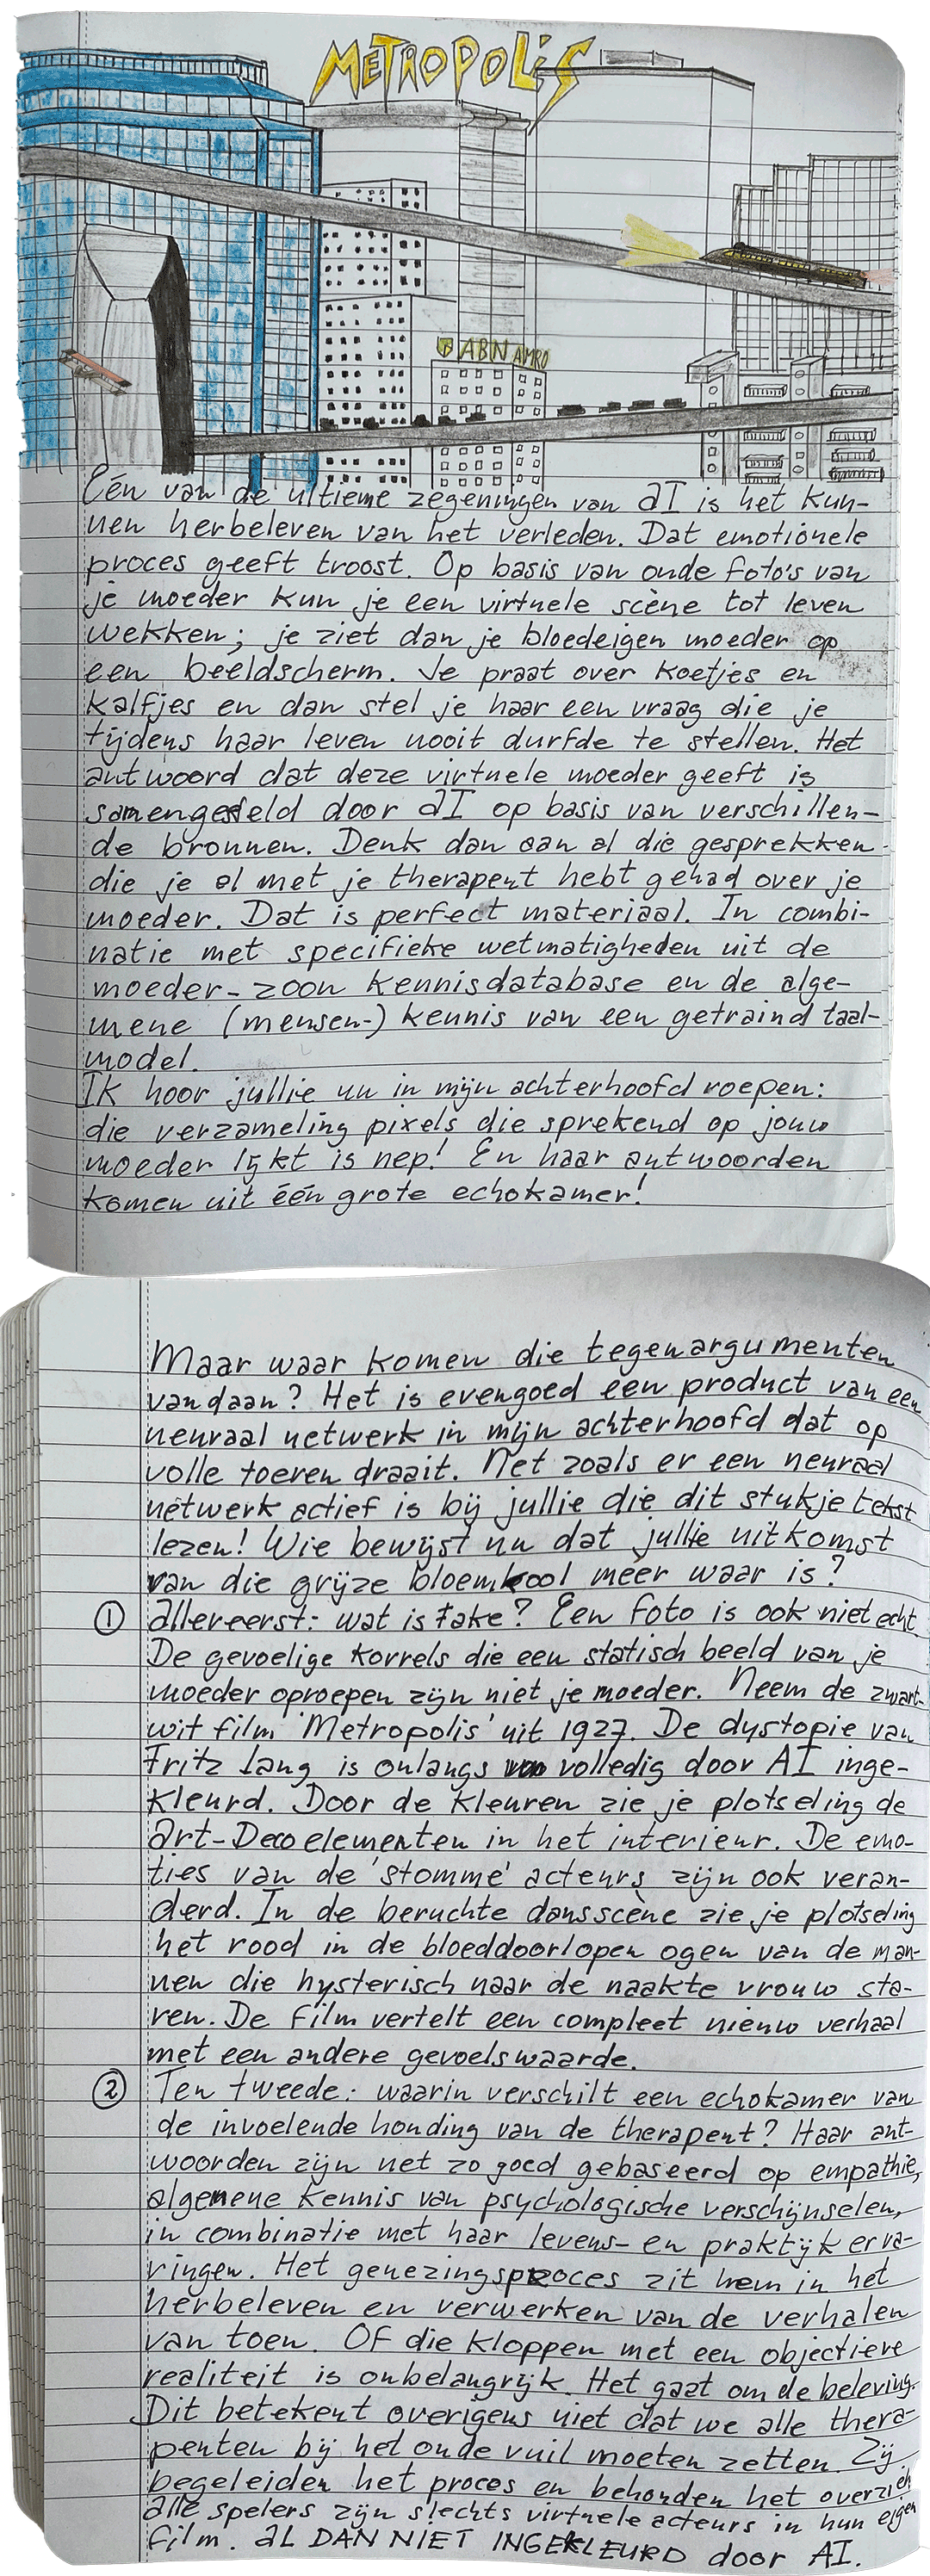 METROPOLIS
ABN AMRO
Eén van de ultieme zegeningen van AI is het kun-
nen herbeleven van het verleden. Dat emotionele
proces geeft troost. Op basis van oude foto's van
je moeder kun je een virtuele scène tot leven
wekken; je ziet dan je bloedeigen moeder op
een beeldscherm. Je praat over koetjes en
kalfjes en dan stel je haar een vraag die je
tijdens haar leven nooit durfde te stellen. Het
antwoord dat deze virtuele moeder geeft is
samengesteld door AI op basis van verschillen-
de bronnen. Denk dan aan al die gesprekken
die je al met je therapeut hebt gehad over je
moeder. Dat is perfect materiaal. In combi-
natie met specifieke wetmatigheden uit de
moeder-zoon kennisdatabase en de alge-
mene (mensen-) kennis van een getraind taal-
model.
Ik hoor jullie nu in mijn achterhoofd roepen:
die verzameling pixels die sprekend op jouw
moeder lijkt is nep! En haar antwoorden
komen uit één grote echokamer!
Maar waar komen die tegenargumenten
vandaan? Het is evengoed een product van een
neuraal netwerk in mijn achterhoofd dat op
volle toeren draait. Net zoals er een neuraal
netwerk actief is bij jullie die dit stukje tekst
lezen! Wie bewijst nu dat jullie uitkomst
van die grijze bloemkool meer waar is?
① Allereerst: wat is fake? Een foto is ook niet echt.
De gevoelige korrels die een statisch beeld van je
moeder oproepen zijn niet je moeder. Neem de zwart-
wit film 'Metropolis' uit 1927. De dystopie van
Fritz Lang is onlangs volledig door AI inge-
kleurd. Door de kleuren zie je plotseling de
Art-Deco elementen in het interieur. De emo-
ties van de 'stomme' acteurs zijn ook veran-
derd. In de beruchte dansscène zie je plotseling
het rood in de bloeddoorlopen ogen van de man-
nen die hysterisch naar de naakte vrouw sta-
ren. De film vertelt een compleet nieuw verhaal
met een andere gevoelswaarde.
② Ten tweede: waarin verschilt een echokamer van
de invoelende houding van de therapeut? Haar ant-
woorden zijn net zo goed gebaseerd op empathie,
algemene kennis van psychologische verschijnselen,
in combinatie met haar levens- en praktijk erva-
ringen. Het genezingsproces zit hem in het
herbeleven en verwerken van de verhalen
van toen. Of die kloppen met een objectieve
realiteit is onbelangrijk. Het gaat om de beleving.
Dit betekent overigens niet dat we alle thera-
peuten bij het oude vuil moeten zetten. Zij
begeleiden het proces en behouden het overzicht.
Alle spelers zijn slechts virtuele acteurs in hun eigen
film. AL DAN NIET INGEKLEURD door AI.